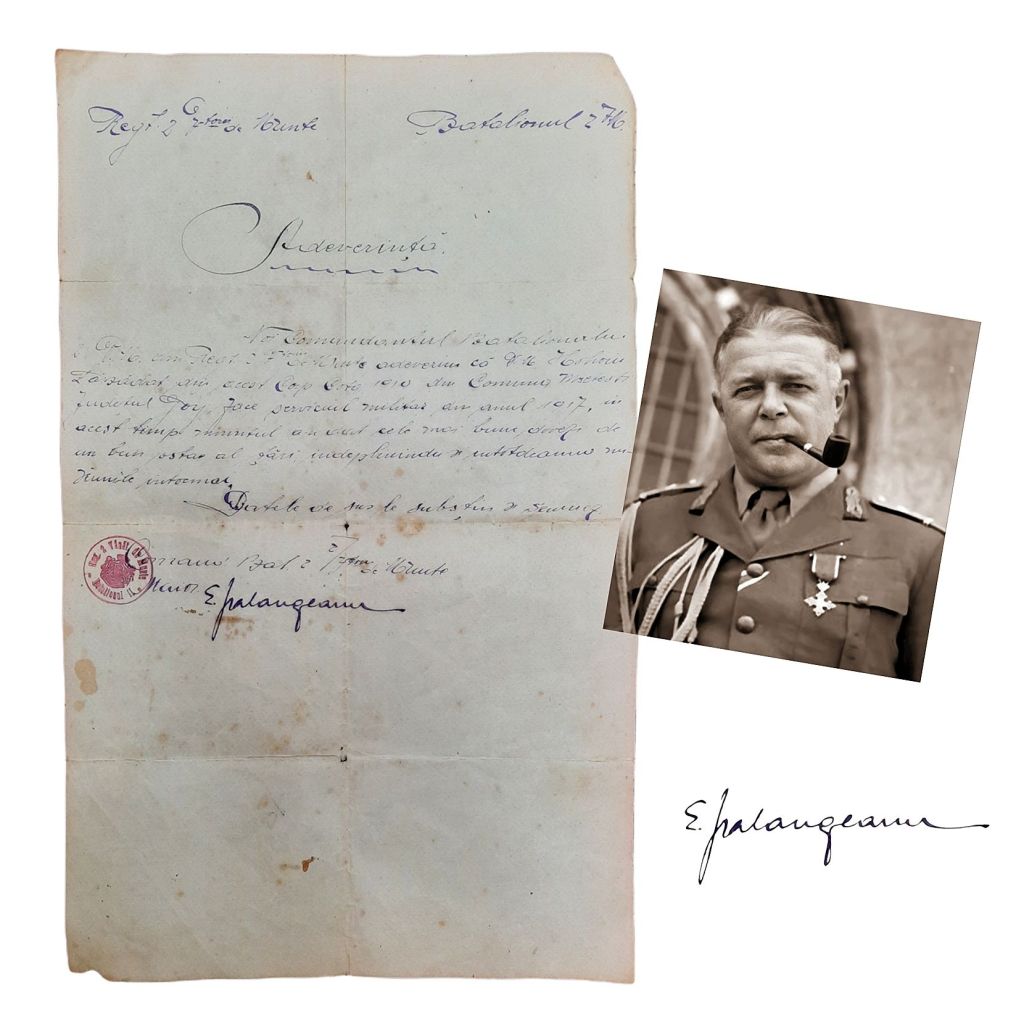 Regt. 2 Vtori de Munte
Batalionul 2 V.M.
Adeverință.
Noi Comandantul Batalionului
2 V.M. din Regt. 2 Vtori de Munte adeverim că
Lăsădat din acest Corp Ctg 1910 din Comuna
Județul Dorj, face serviciul militar din anul 1917, in
acest timp numitul an dat cele mai bune dovezi de
un bun ostaș al țări, indeplinindu și intotdeauna
intocmai.
Datele de sus le susțin și semnez
Comand. Bat. 2 Vtori de Munte
E. Palangeanu
Reg. 2 Vânăt. de Munte
Batalionul II
E. Palangeanu